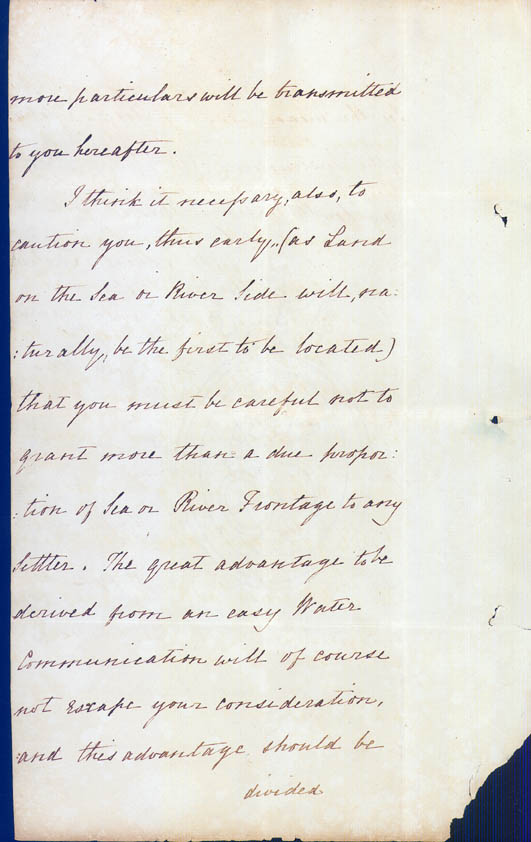 more particulars will be transmitted
to you hereafter.
I think it necessary, also, to
caution you, thus early, (as Land
on the Sea or River Side will, na:
:turally, be the first to be located)
that you must be careful not to
grant more than a due propor:
:tion of Sea or River Frontage to any
Settler. The great advantage to be
derived from an easy Water
Communication will of course
not Escape your consideration,
and this advantage should be
divided